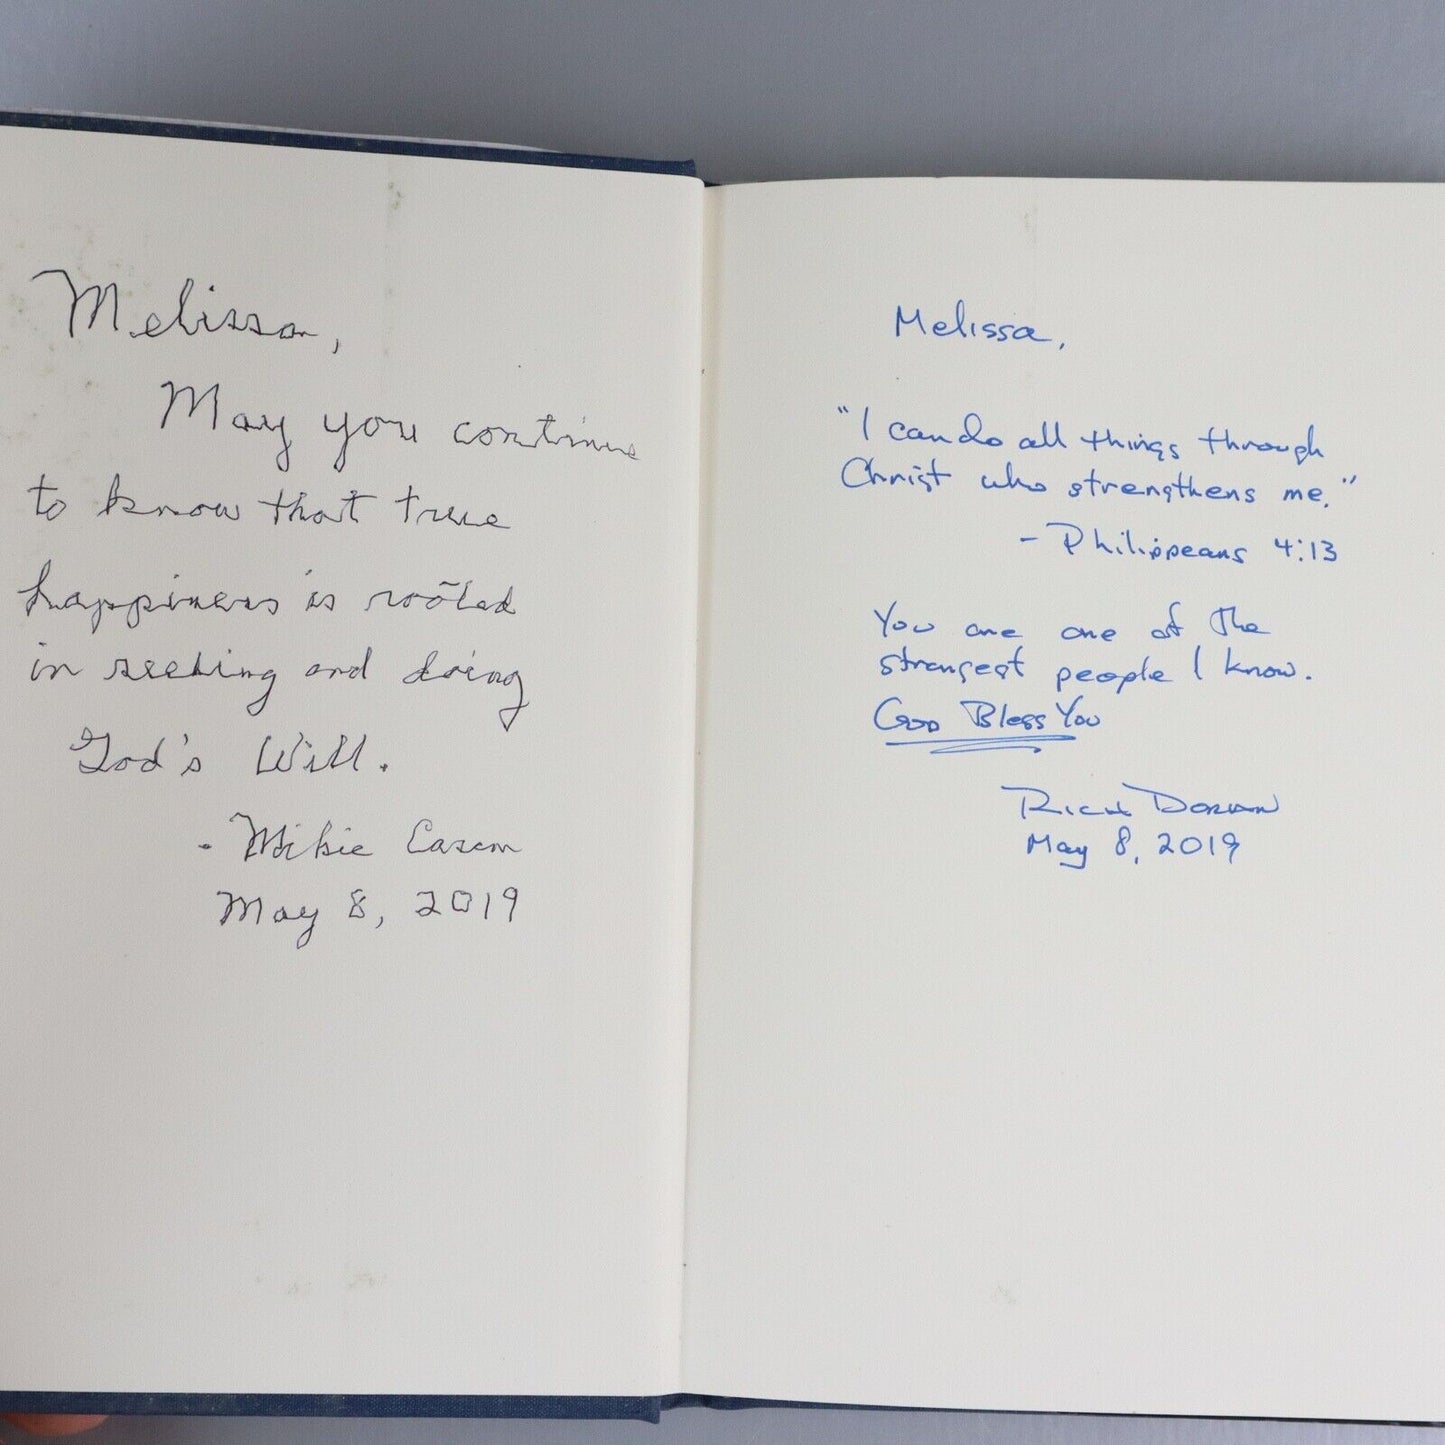 Melissa,
May you continue
to know that true
happiness is rooted
in seeking and doing
God's Will.
- Mikie Casem
May 8, 2019
Melissa,
"I can do all things through
Christ who strengthens me."
- Philippeans 4:13
You are one of the
strongest people I know.
God Bless You
Rich Doran
May 8, 2019